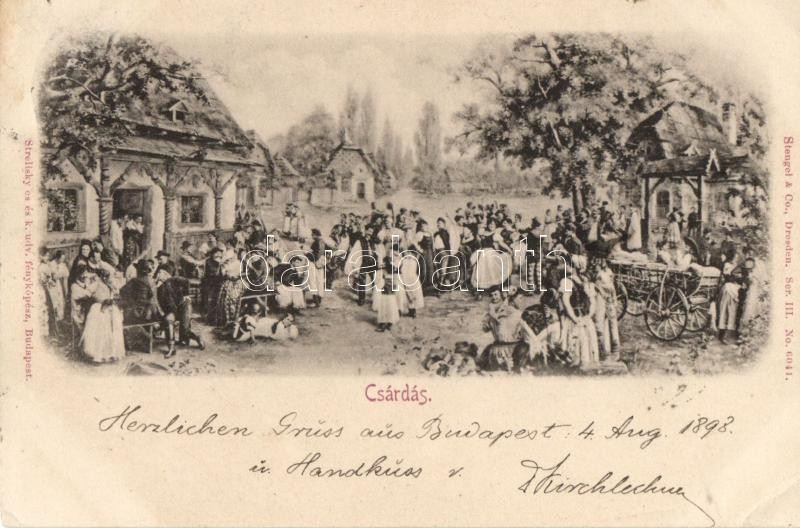 Strelisky cs és k. udv. fényképész, Budapest.
Stengel & Co., Dresden. Ser. III. No. 6041.
darabanth
Csárdás.
Herzlichen Grüss aus Budapest: 4 Aug. 1898.
u. Handküss v. Kirchlechner